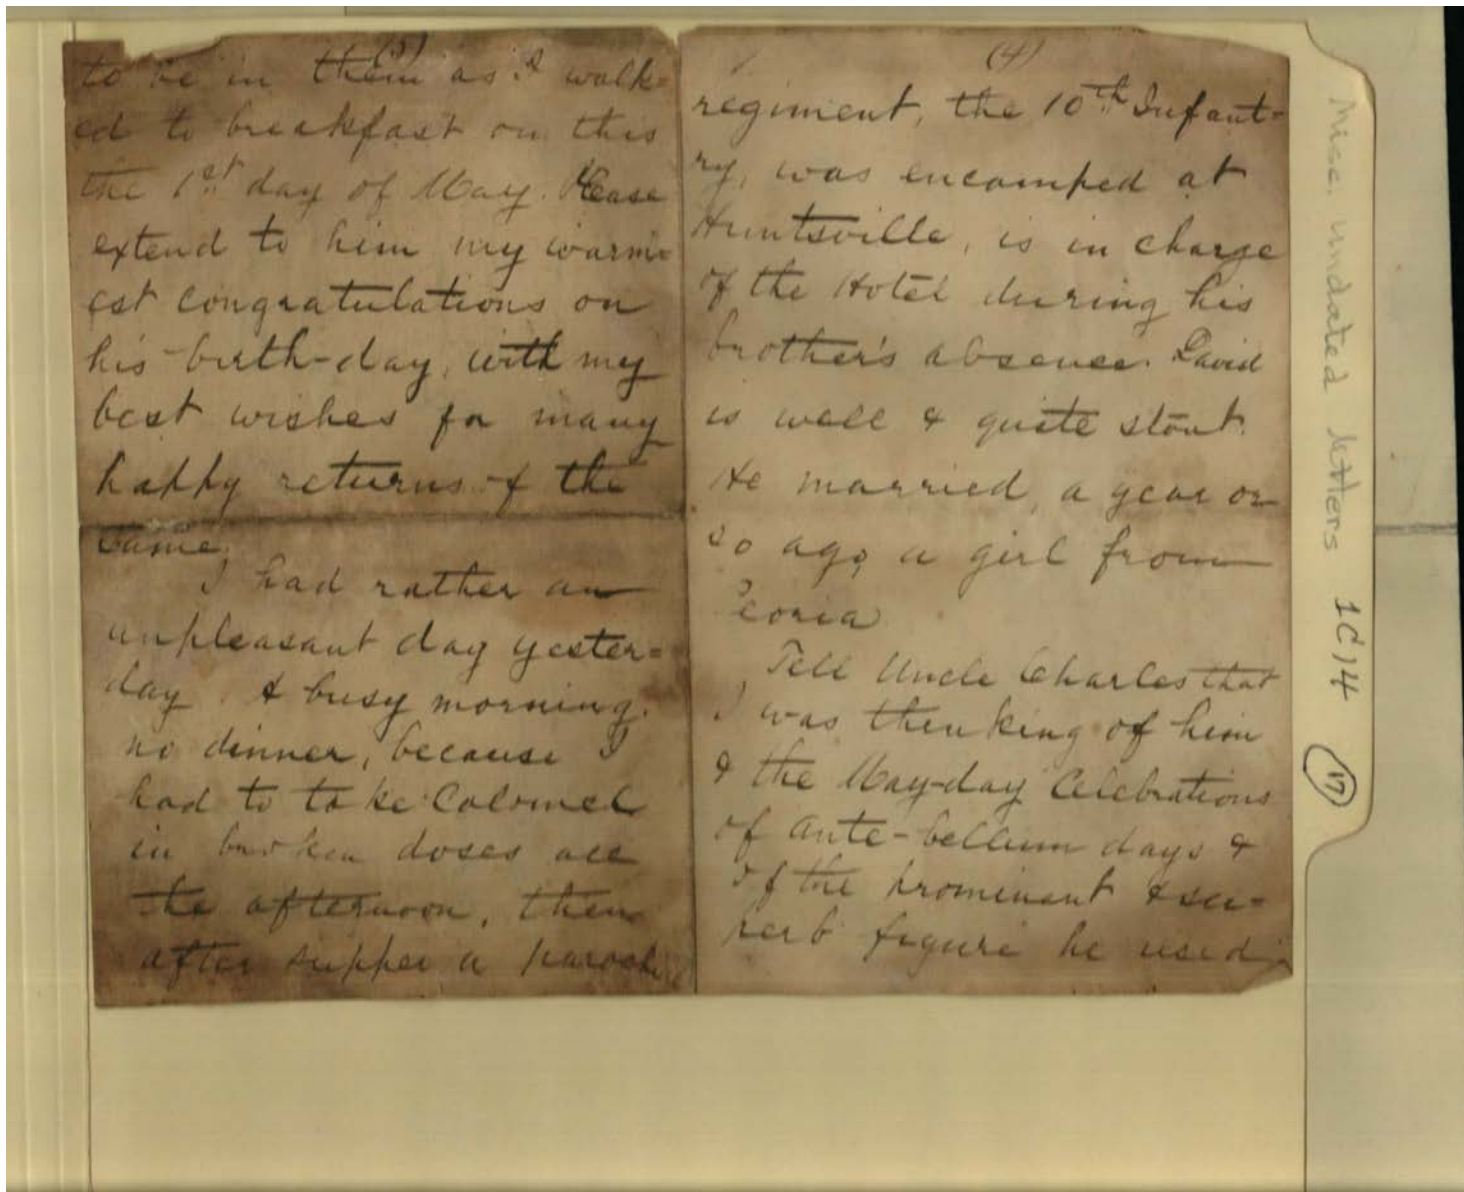 (5)
to be in them as I walk=
ed to breakfast on this
the 1st day of May. Please
extend to him my warm=
est congratulations on
his birth-day, with my
best wishes for many
happy returns of the
same.
I had rather an
unpleasant day yester=
day. A busy morning.
no dinner, because I
had to take Calomel
in broken doses all
the afternoon, then
after supper a
(4)
regiment, the 10th Infant=
ry, was encamped at
Huntsville, is in charge
of the Hotel during his
brother's absence. David
is well & quite stout.
He married, a year or
so ago, a girl from
Peoria
Tell Uncle Charles that
I was thinking of him
& the May-day Celebrations
of ante-bellum days &
of the prominent & su=
perb figure he used
Misc. undated letters 1C14
17